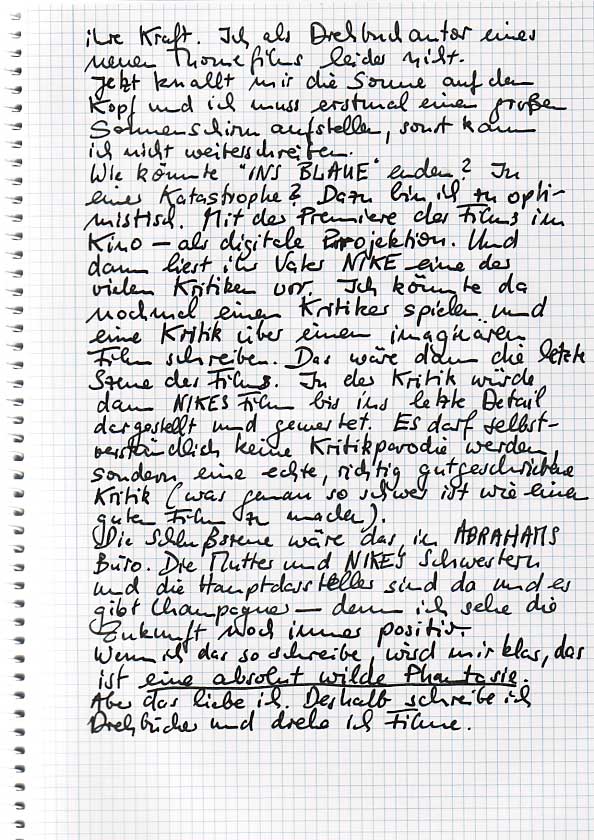 ihre Kraft. Ich als Drehbuchautor eines
neuen Thomefilms leider nicht.
Jetzt knallt mir die Sonne auf den
Kopf und ich muss erstmal einen großen
Sonnenschirm aufstellen, sonst kann
ich nicht weiterschreiben.
Wie könnte "INS BLAUE" enden? In
einer Katastrophe? Dazu bin ich zu opti-
mistisch. Mit der Premiere des Films im
Kino – als digitale Projektion. Und
dann liest ihr Vater NIKE eine der
vielen Kritiken vor. Ich könnte da
nochmal einen Kritiker spielen und
eine Kritik über einen imaginären
Film schreiben. Das wäre dann die letzte
Szene des Films. In der Kritik würde
dann NIKES Film bis ins letzte Detail
dargestellt und gewertet. Es darf selbst-
verständlich keine Kritikparodie werden,
sondern eine echte, richtig gutgeschriebene
Kritik (was genau so schwer ist wie einen
guten Film zu machen).
Die Schlußszene wäre das in ABRAHAMS
Büro. Die Mutter und NIKE's Schwestern
und die Hauptdarsteller sind da und es
gibt Champagner – denn ich sehe die
Zukunft noch immer positiv.
Wenn ich das so schreibe, wird mir klar, das
ist eine absolut wilde Phantasie.
Aber das liebe ich. Deshalb schreibe ich
Drehbücher und drehe ich Filme.